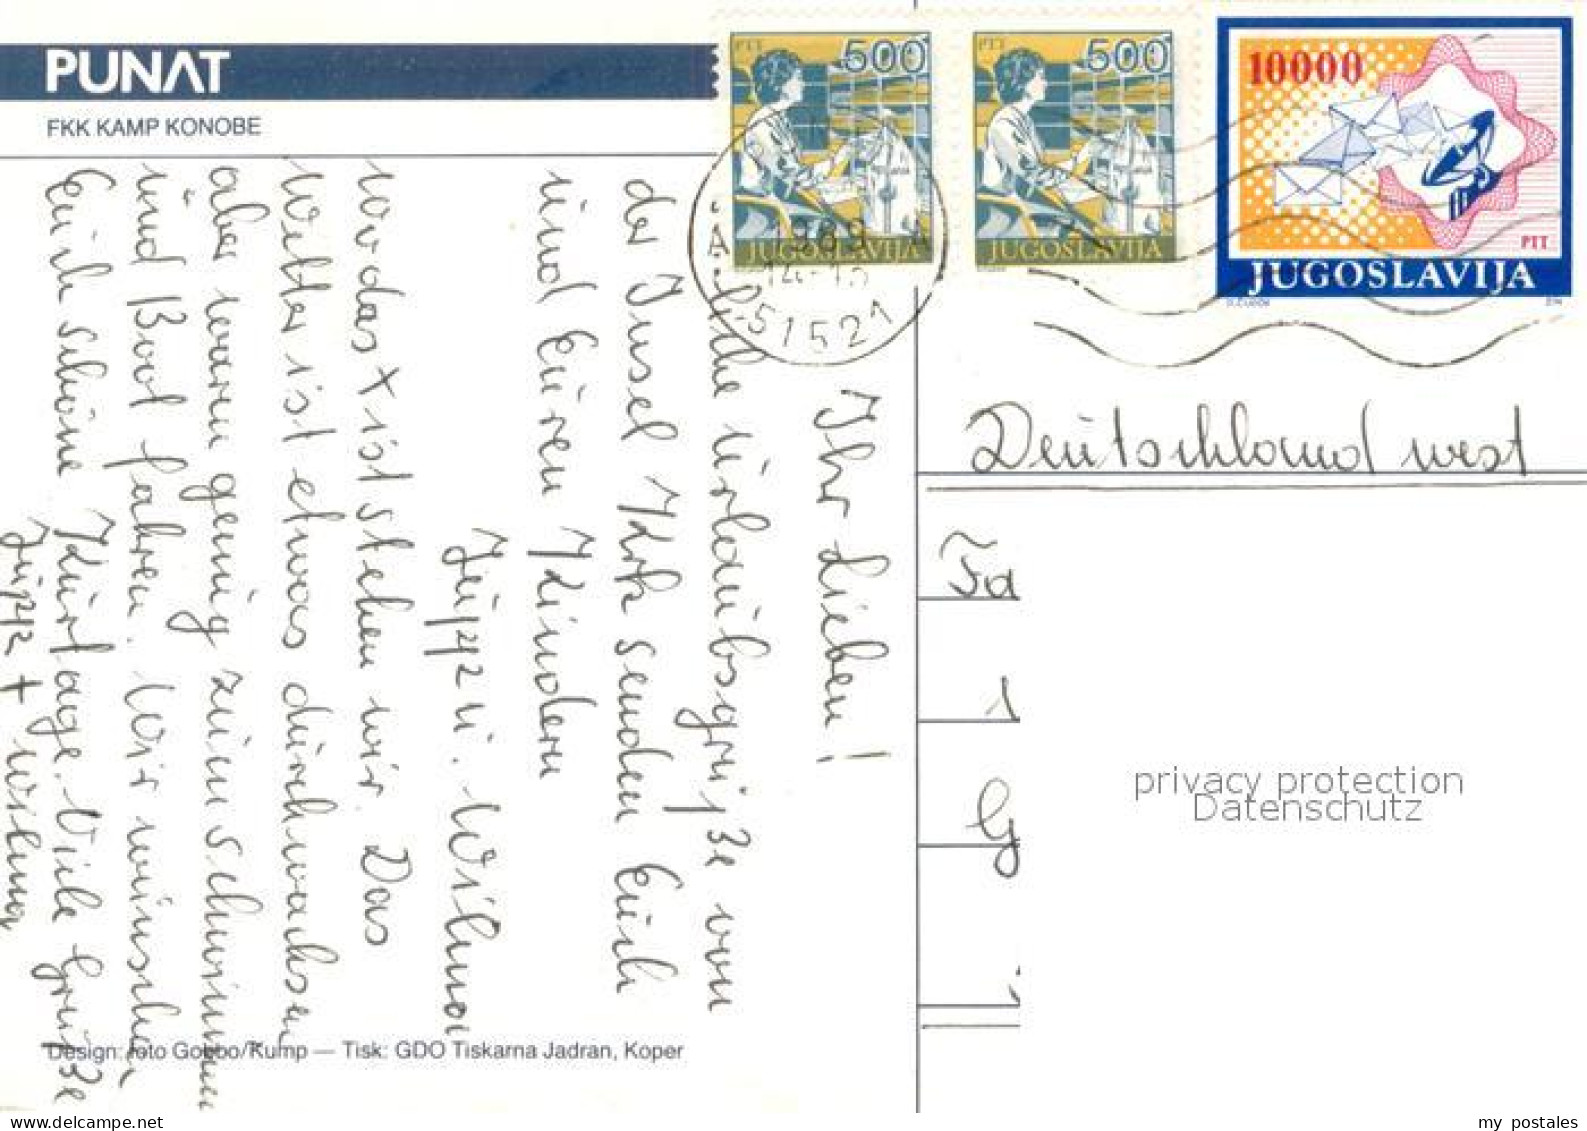 PUNAT
FKK KAMP KONOBE
PTT 500
JUGOSLAVIJA
PTT 500
JUGOSLAVIJA
10000
PTT
JUGOSLAVIJA
1989
14-15
A A
51521
Ihr Lieben!
Urlaubsgrüße von
der Insel Krk senden Euch
und Euren Kindern
Jupp u. Wilma
wo das x ist stehen wir. Das
Wetter ist etwas durchwachsen
aber warm genug zum schwimmen
und Boot fahren. Wir wünschen
Euch schöne Kurtage. Viele Grüße
Jupp + Wilma
Design: foto Gobbo/Kump — Tisk: GDO Tiskarna Jadran, Koper
Deutschland west
Fa
1
G
privacy protection
Datenschutz
my postales